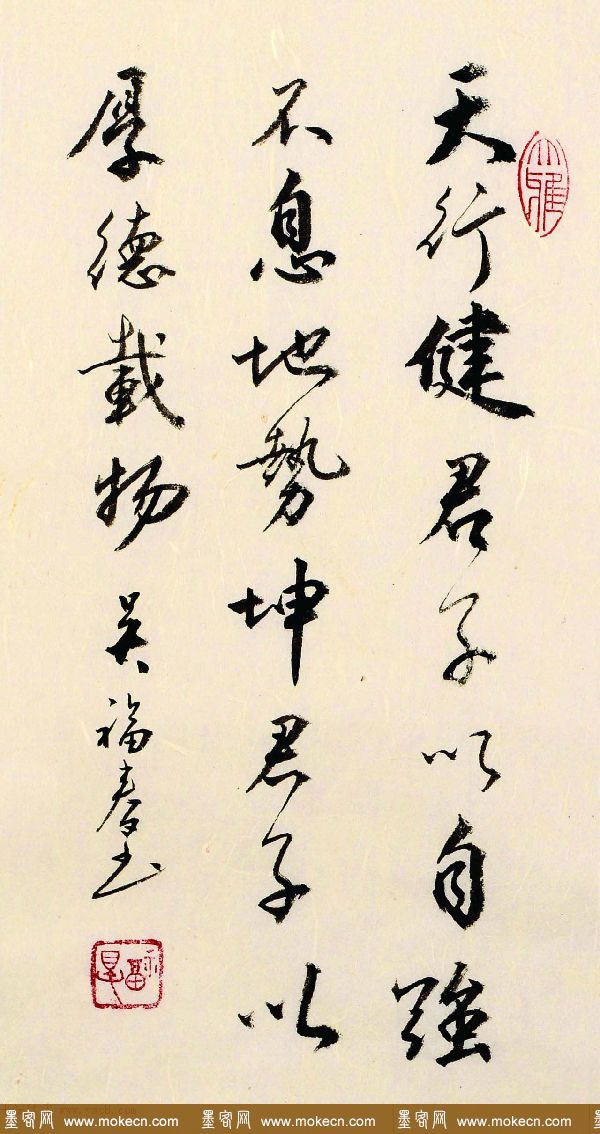 天行健君子以自強
不息地勢坤君子以
厚德載物 吴福春书
大雅
墨客网 www.mokecn.com 墨客网 www.mokecn.com 墨客网 www.mokecn.com